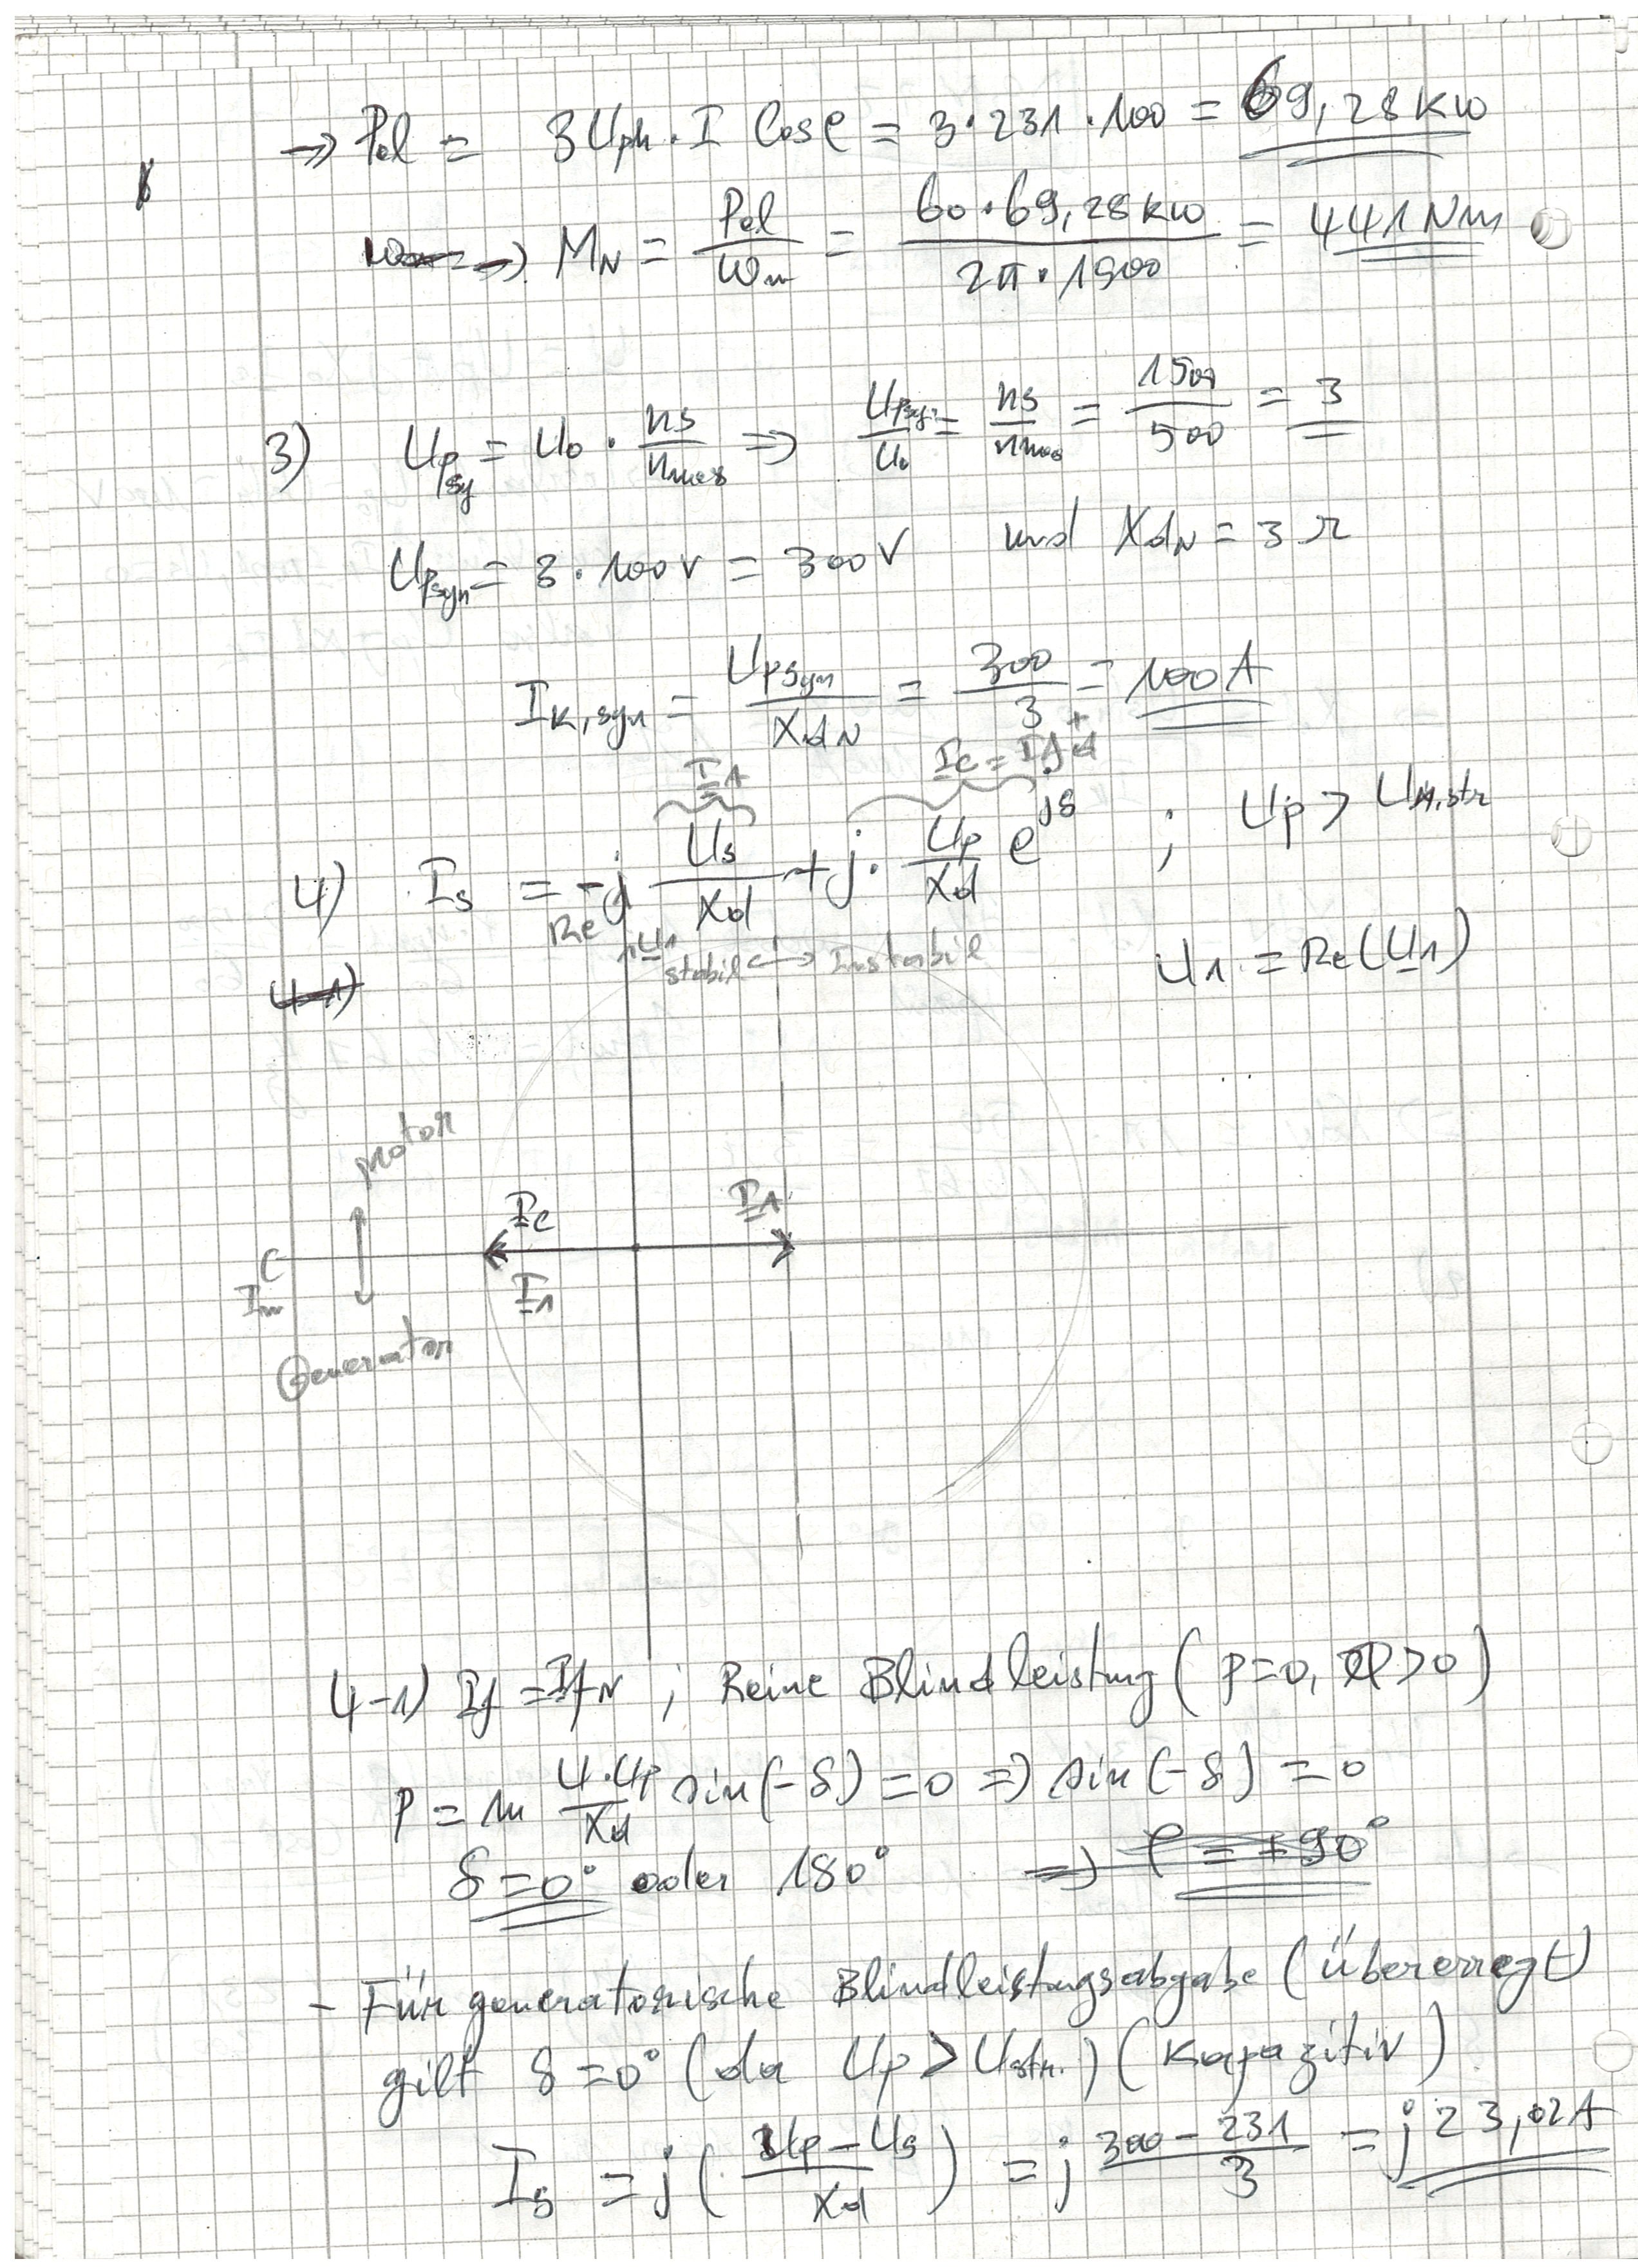 → Pel = 3 Uph · I Cosφ = 3 · 231 · 100 = 69,28 kW
→ MN = Pel / ωm = 60 · 69,28 kW / 2π · 1500 = 441 Nm
3) Upsy = U0 · ns / nmes ⇒ Upsy / U0 = ns / nmes = 1500 / 500 = 3
Upsyn = 3 · 100 V = 300 V und XdN = 3 Ω
IK,syn = Upsyn / XdN = 300 / 3 = 100 A
I1 Ie = If
4) Is = -j Us / Xd + j · Up / Xd e^jδ ; Up > UN,str
Re ↑U1 stabil ↔ Instabil U1 = Re(U1)
4-1)
Motor
Ie I1
Im I1
Generator
4-1) If = IfN ; Reine Blindleistung (P=0, Q>0)
P = m U·Up / Xd sin(-δ) = 0 ⇒ sin(-δ) = 0
δ = 0° oder 180° ⇒ φ = +90°
- Für generatorische Blindleistungsabgabe (übererregt)
gilt δ = 0° (da Up > Ustr.) (Kapazitiv)
Is = j( Up - Us / Xd ) = j 300 - 231 / 3 = j 23,02 A